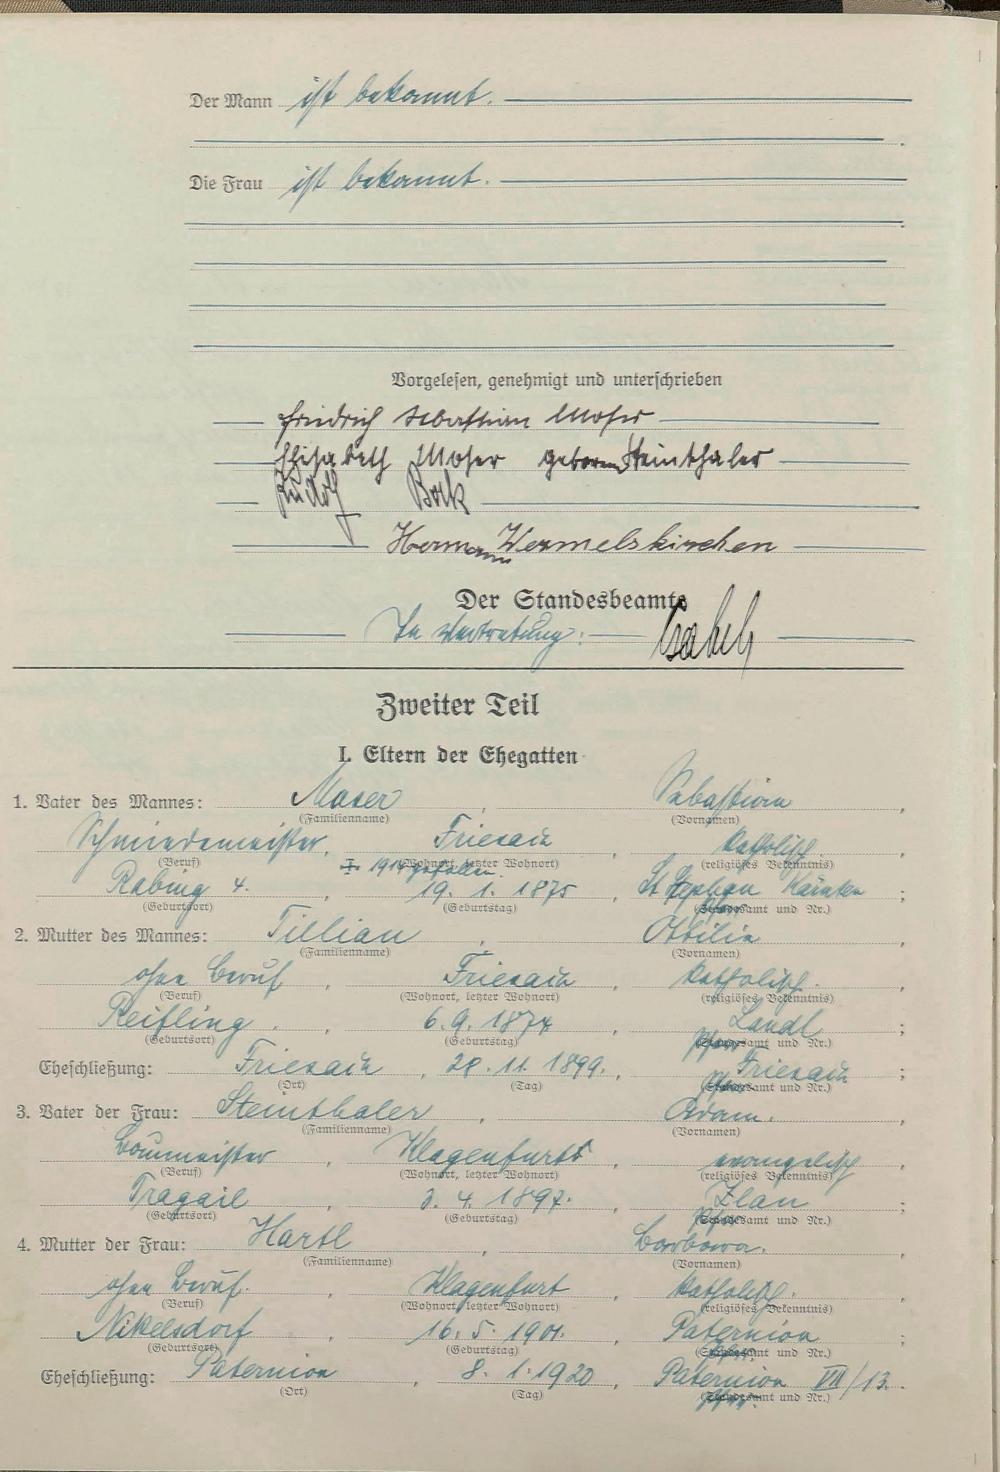 Der Mann ist bekannt.
Die Frau ist bekannt.
Vorgelesen, genehmigt und unterschrieben
Friedrich Sebastian Moser
Elisabeth Moser geboren Steinthaler
Rudolf Bock
Hermann Wermelskirchen
Der Standesbeamte
In Vertretung:
Zweiter Teil
I. Eltern der Ehegatten
1. Vater des Mannes: Moser, Sebastian,
(Familienname) (Vornamen)
Schmiedemeister, Friesach katholisch,
(Beruf) (Wohnort, letzter Wohnort) (religiöses Bekenntnis)
1914 gefallen.
Rabing, 19. 1. 1875 St Stephan Kärnten;
(Geburtsort) (Geburtstag) (Standesamt und Nr.)
2. Mutter des Mannes: Tillian, Ottilie,
(Familienname) (Vornamen)
ohne Beruf, Friesach, katholisch.,
(Beruf) (Wohnort, letzter Wohnort) (religiöses Bekenntnis)
Reifling, 6. 9. 1874, Landl;
(Geburtsort) (Geburtstag) (Standesamt und Nr.)
Eheschließung: Friesach, 28. 11. 1899., Friesach;
(Ort) (Tag) (Standesamt und Nr.)
3. Vater der Frau: Steinthaler, Adam.,
(Familienname) (Vornamen)
Baumeister, Klagenfurt, evangelisch,
(Beruf) (Wohnort, letzter Wohnort) (religiöses Bekenntnis)
Tragail, 3. 4. 1897., Zlan;
(Geburtsort) (Geburtstag) (Standesamt und Nr.)
4. Mutter der Frau: Hartl, Barbara.,
(Familienname) (Vornamen)
ohne Beruf., Klagenfurt, katholisch.,
(Beruf) (Wohnort, letzter Wohnort) (religiöses Bekenntnis)
Nikelsdorf, 16. 5. 1901., Paternion;
(Geburtsort) (Geburtstag) (Standesamt und Nr.)
Eheschließung: Paternion, 8. 1. 1920, Paternion VII/13.
(Ort) (Tag) (Standesamt und Nr.)